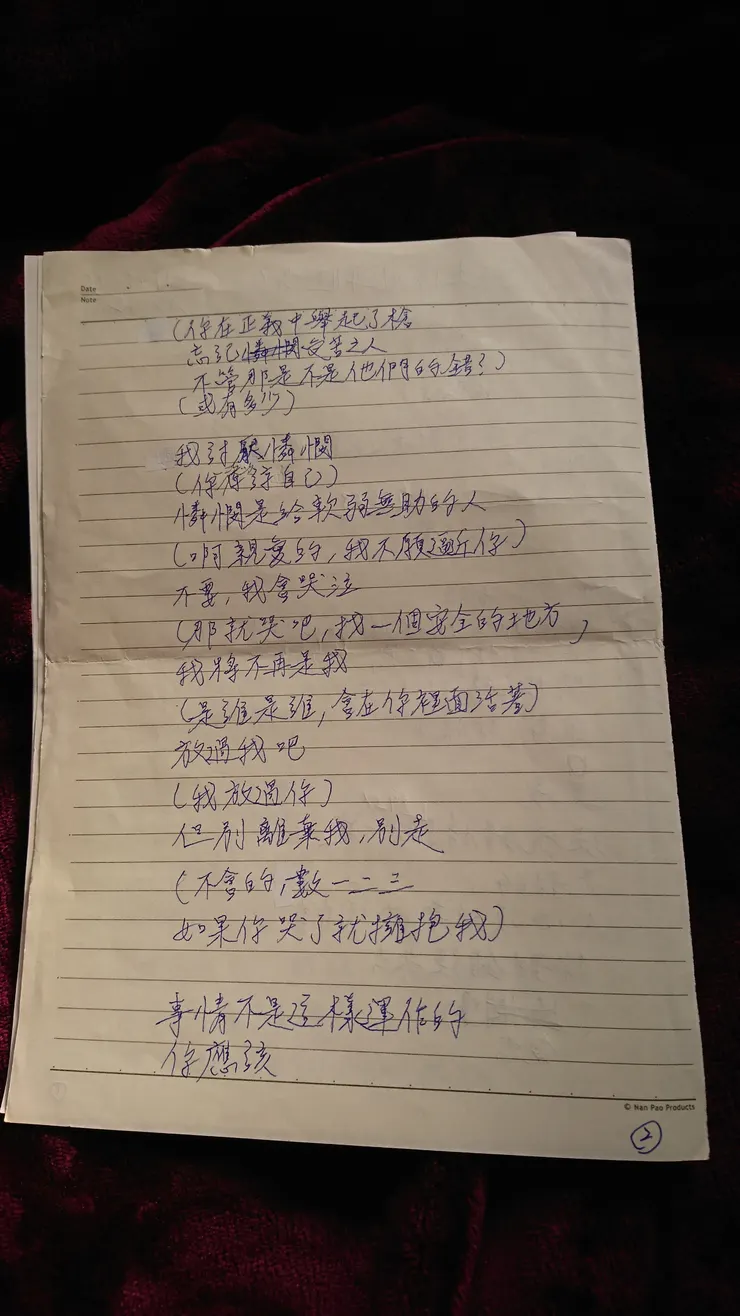 Date
Note
(你在正義中舉起了槍
忘記憐憫受苦之人
不管那是不是他們的錯了)
(或有多少)
我討厭憐憫
(你在說自己)
憐憫是給軟弱無助的人
(啊親愛的,我不願逼近你)
不要,我會哭泣
(那就哭吧,找一個安全的地方)
我將不再是我
(是誰是誰,會在你裡面活著)
放過我吧
(我放過你)
但別離棄我,別走
(不會的,數一二三
如果你哭了就擁抱我)
事情不是這樣運作的
你應該
© Nan Pao Products
2